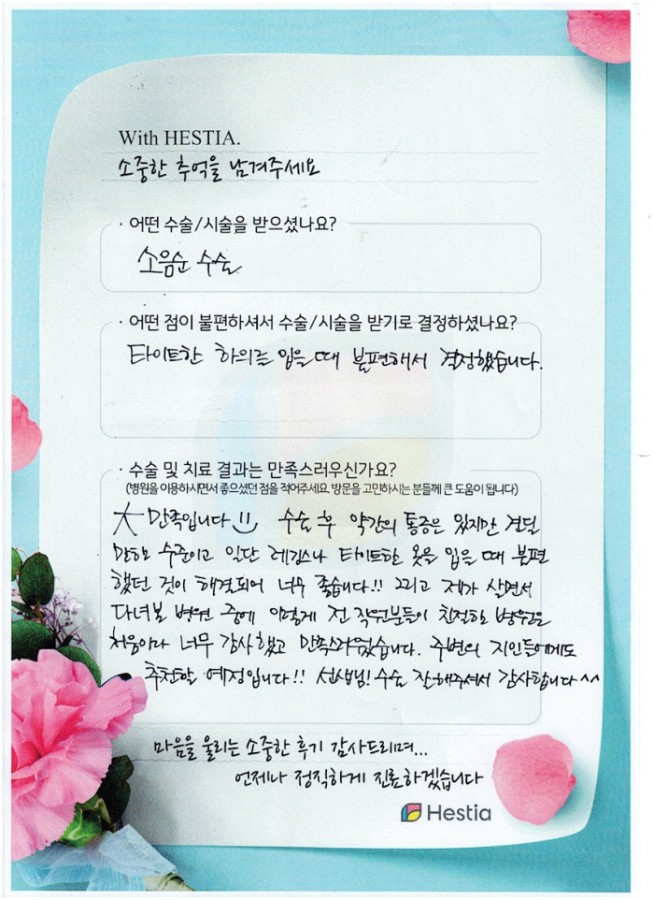 With HESTIA.
소중한 추억을 남겨주세요
· 어떤 수술/시술을 받으셨나요?
소음순 수술
· 어떤 점이 불편하셔서 수술/시술을 받기로 결정하셨나요?
타이트한 하의를 입을 때 불편해서 결정했습니다.
· 수술 및 치료 결과는 만족스러우신가요?
(병원을 이용하시면서 좋으셨던 점을 적어주세요. 방문을 고민하시는 분들께 큰 도움이 됩니다)
大 만족입니다 !! 수술 후 약간의 통증은 있지만 견딜
만한 수준이고 일단 레깅스나 타이트한 옷을 입을 때 불편
했던 것이 해결되어 너무 좋습니다!! 그리고 제가 살면서
다녀본 병원 중에 이렇게 전 직원분들이 친절한 병원은
처음이라 너무 감사했고 만족스러웠습니다. 주변의 지인들에게도
추천할 예정입니다!! 선생님! 수술 잘해주셔서 감사합니다^^
마음을 울리는 소중한 후기 감사드리며...
언제나 정직하게 진료하겠습니다
Hestia